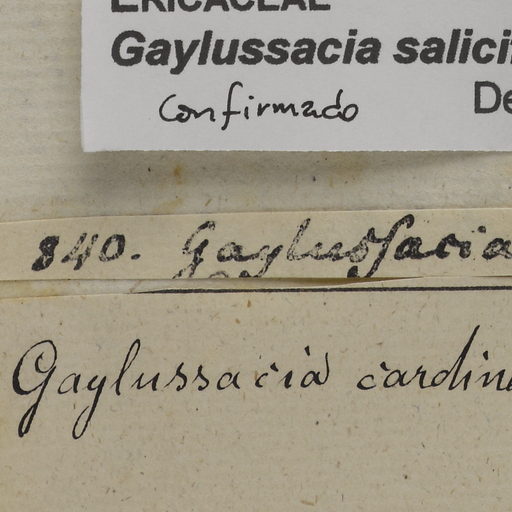 ERICACEAE
Gaylussacia salicif
Confirmado De
840. Gaylussacia
Gaylussacia cardin